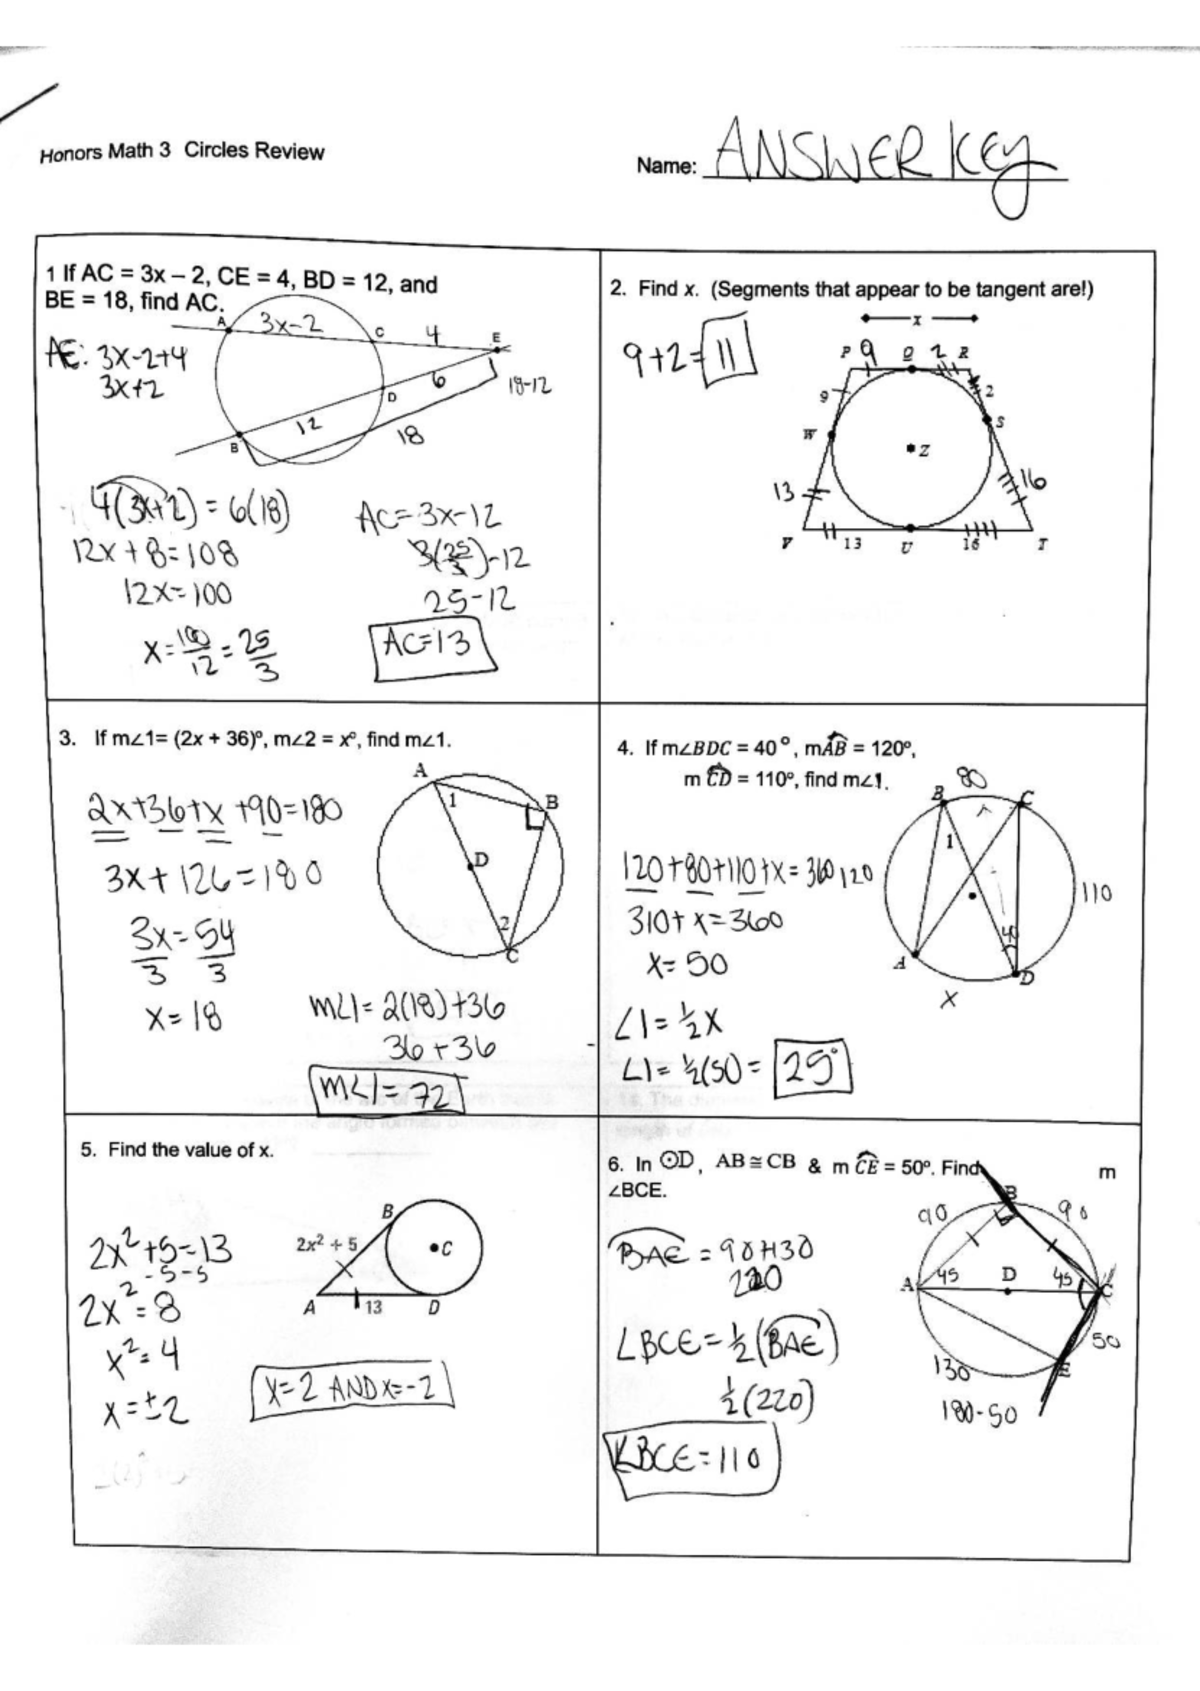 Honors Math 3 Circles Review
Name: ANSWER KEY
1 If AC = 3x – 2, CE = 4, BD = 12, and
BE = 18, find AC.
A
3x-2
C
4
E
AE: 3x-2+4
3x+2
6
18-12
D
12
B
18
4(3x+2) = 6(18)
12x + 8 = 108
12x = 100
x = 100/12 = 25/3
AC = 3x-12
3(25/3)-12
25-12
AC=13
2. Find x. (Segments that appear to be tangent are!)
9+2= 11
x
P 9 Q 2 R
9
2
W
S
Z
13
16
V 13 U 16 T
3. If m∠1= (2x + 36)º, m∠2 = xº, find m∠1.
A
1
B
D
2
C
2x+36+x +90=180
3x + 126 = 180
3x = 54
3 3
x = 18
m∠1 = 2(18)+36
36 + 36
m∠1 = 72
4. If m∠BDC = 40°, mAB = 120º,
m CD = 110º, find m∠1.
80
B C
1
120
110
40
A D
x
120+80+110+x = 360
310+ x = 360
x = 50
∠1 = ½x
∠1 = ½(50) = 25°
5. Find the value of x.
B
2x² + 5
C
A 13 D
2x²+5=13
-5-5
2x² = 8
x² = 4
x = ±2
x=2 AND x=-2
6. In ⊙D, AB ≅ CB & m CE = 50º. Find m
∠BCE.
B
90 90
A 45 D 45 C
50
E
130
180-50
BAE = 90+130
220
∠BCE = ½(BAE)
½(220)
∠BCE = 110